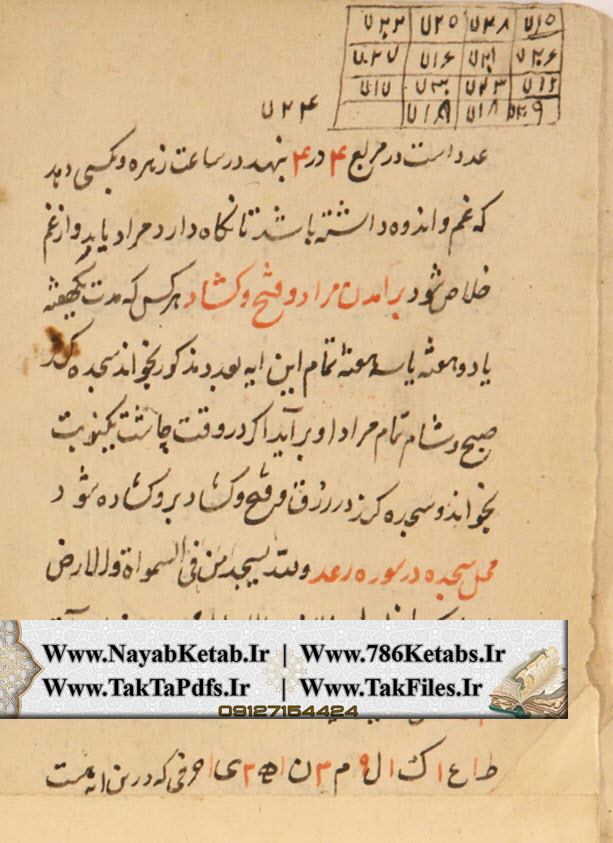 ۷۲۲ ۷۲۵ ۷۲۸ ۷۱۵
۷۲۷ ۷۱۶ ۷۲۱ ۷۲۶
۷۱۷ ۷۳۰ ۷۲۳
۷۱۹ ۷۱۸
۷۲۴
عدد است در مربع ۴ در ۴ بنهد در ساعت زهره و بکسی دهد
که غم و اندوه داشته باشد تا نکاه دارد مراد یابد و از غم
خلاص شود برآمدن مراد و فتح و کشاد هر کس که مدت یکهفته
یا دو هفته یا سه هفته تمام این ایه بعدد مذکور بخواند سجده کرد
صبح و شام تمام مراد او برآید اکر در وقت چاشت یکنوبت
بخواند و سجده کرد در رزق و فتح و کشاد برو کشاده شود
محل سجده در سوره رعد ولله یسجد من فی السمواة والارض
Www.NayabKetab.Ir | Www.786Ketabs.Ir
Www.TakTaPdfs.Ir | Www.TakFiles.Ir
09127154424
ط ا ع ا ک ا ل ۹ م ۳ ن ا ه ۲ ی ا حرفی که درین ایه هست